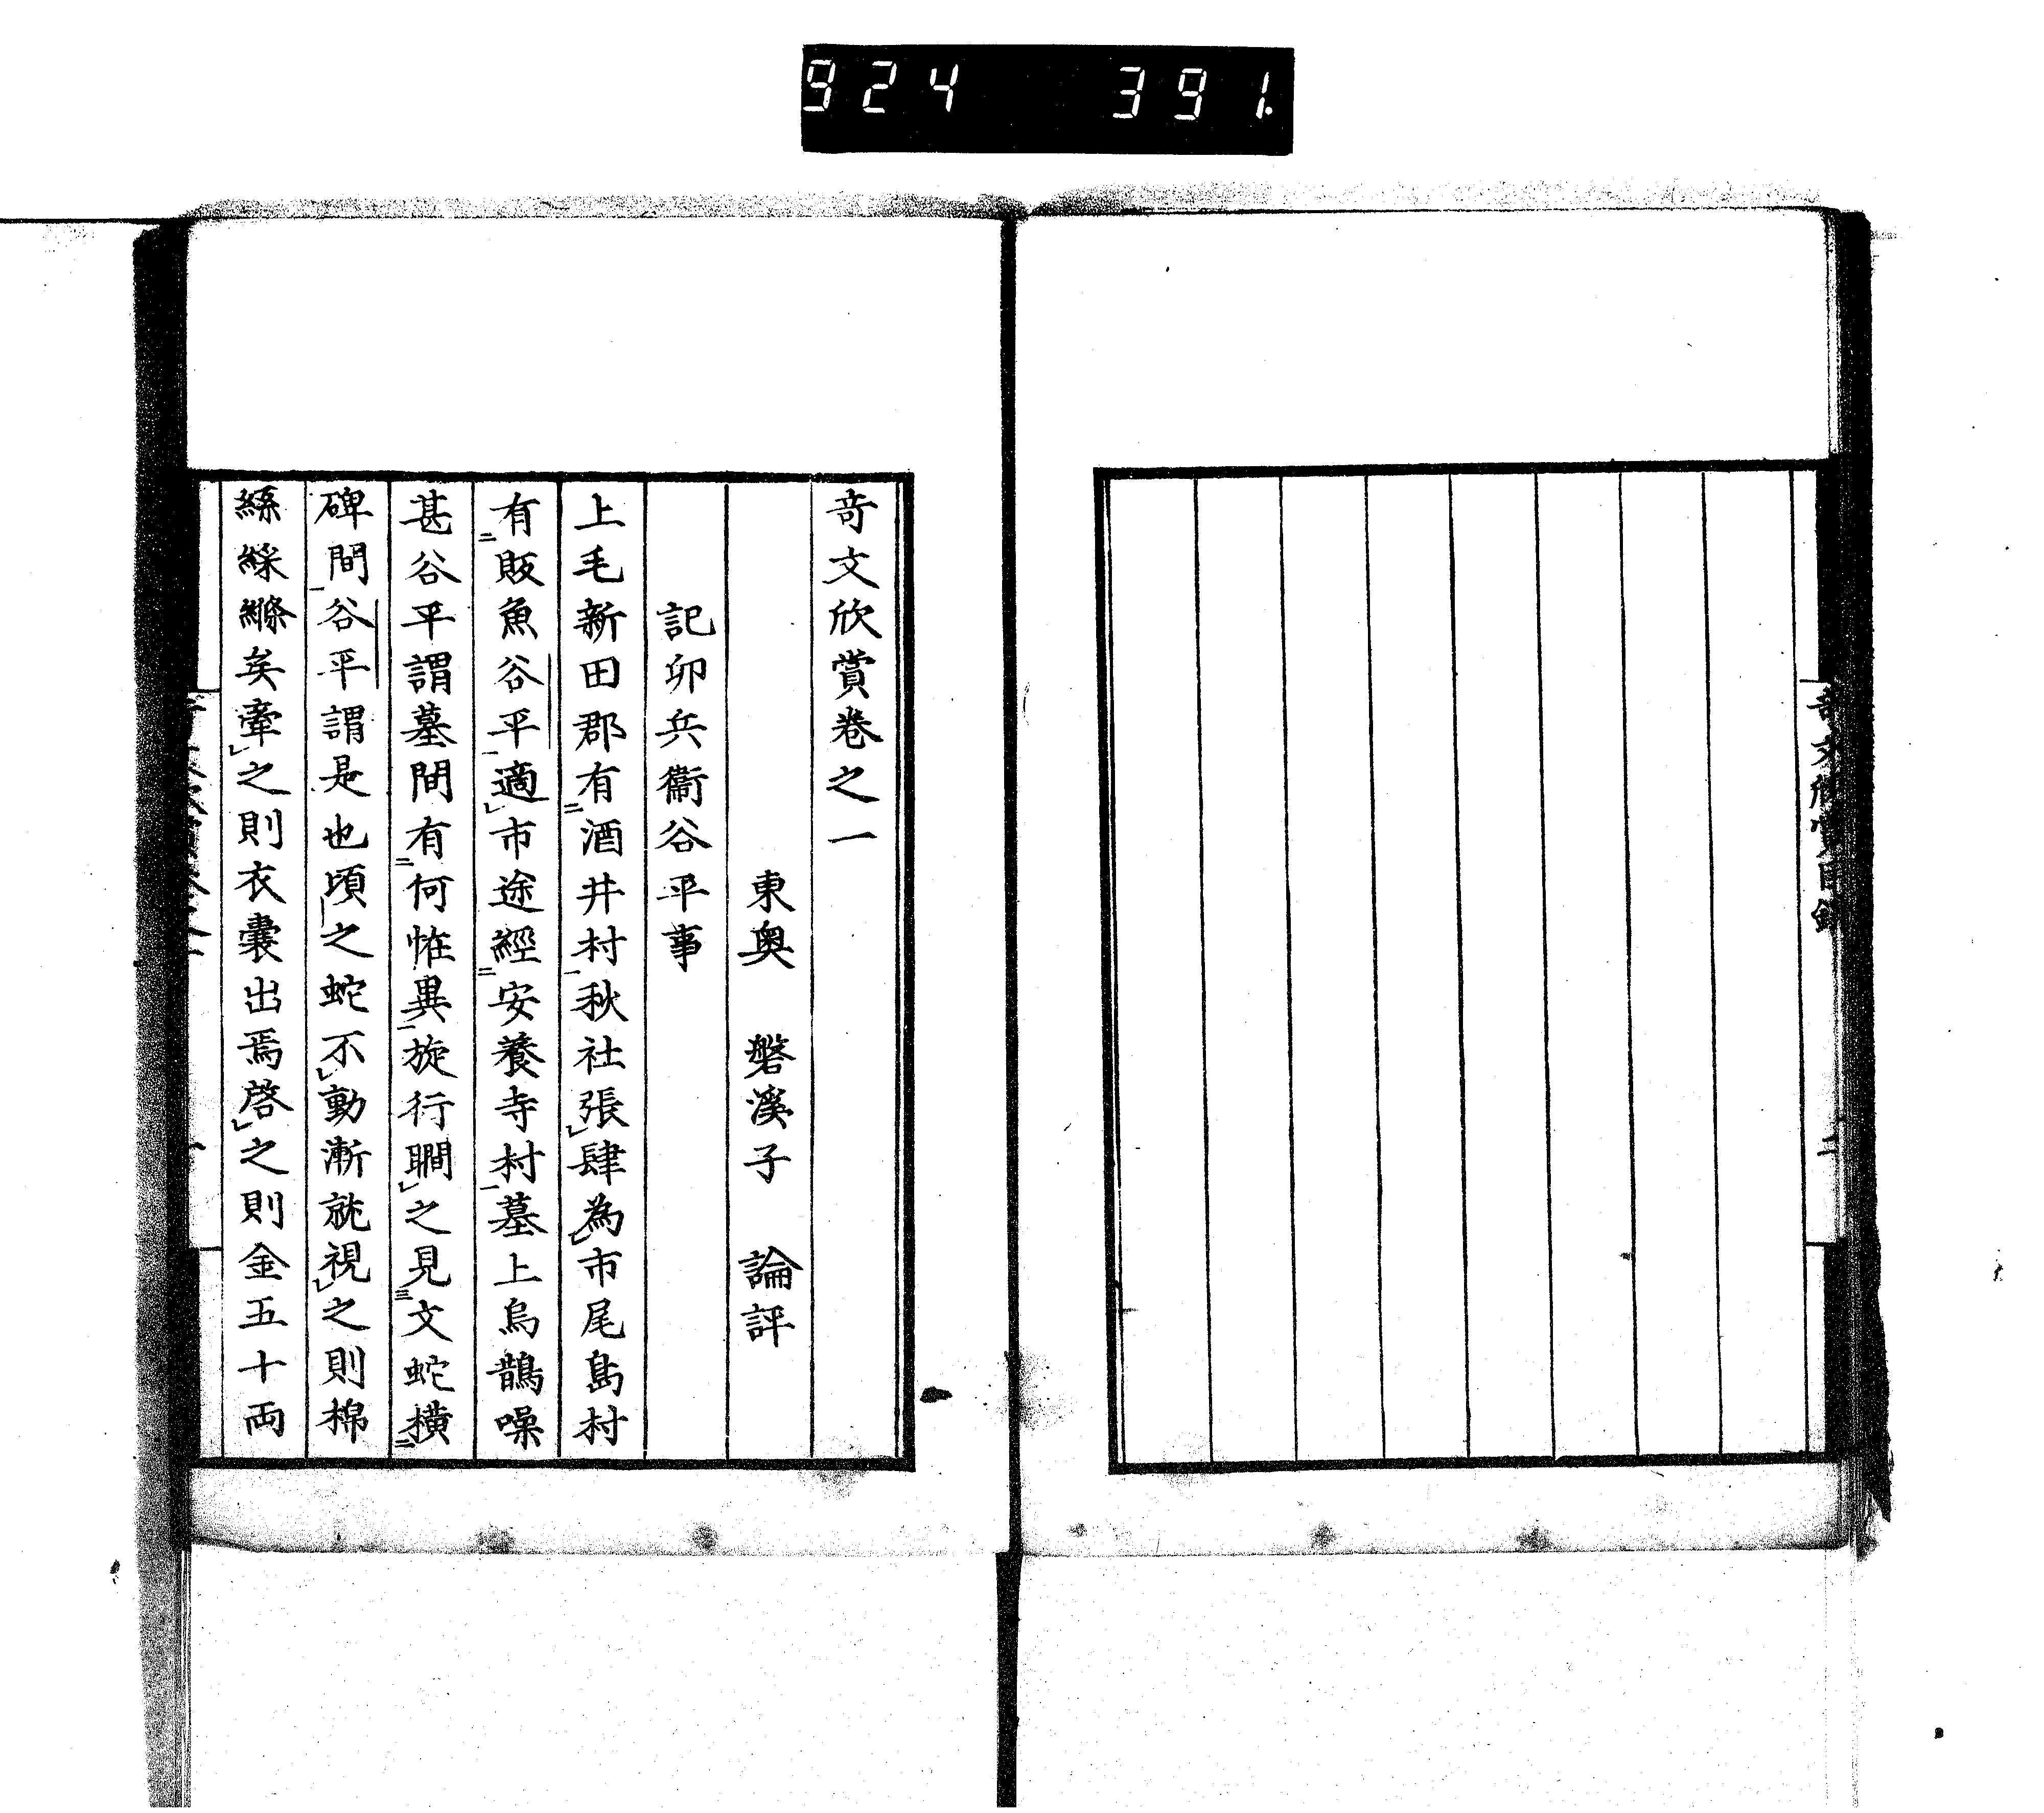 924 391.
奇文欣賞目錄
二
奇文欣賞卷之一
東奥 磐溪子 論評
記卯兵衞谷平事
上毛新田郡有酒井村秋社張肆為市尾島村
有販魚谷平適市途經安養寺村墓上烏鵲噪
甚谷平謂墓間有何恠異旋行瞷之見文蛇橫
碑間谷平謂是也頃之蛇不動漸就視之則棉
絲綵縧矣牽之則衣囊出焉啓之則金五十両